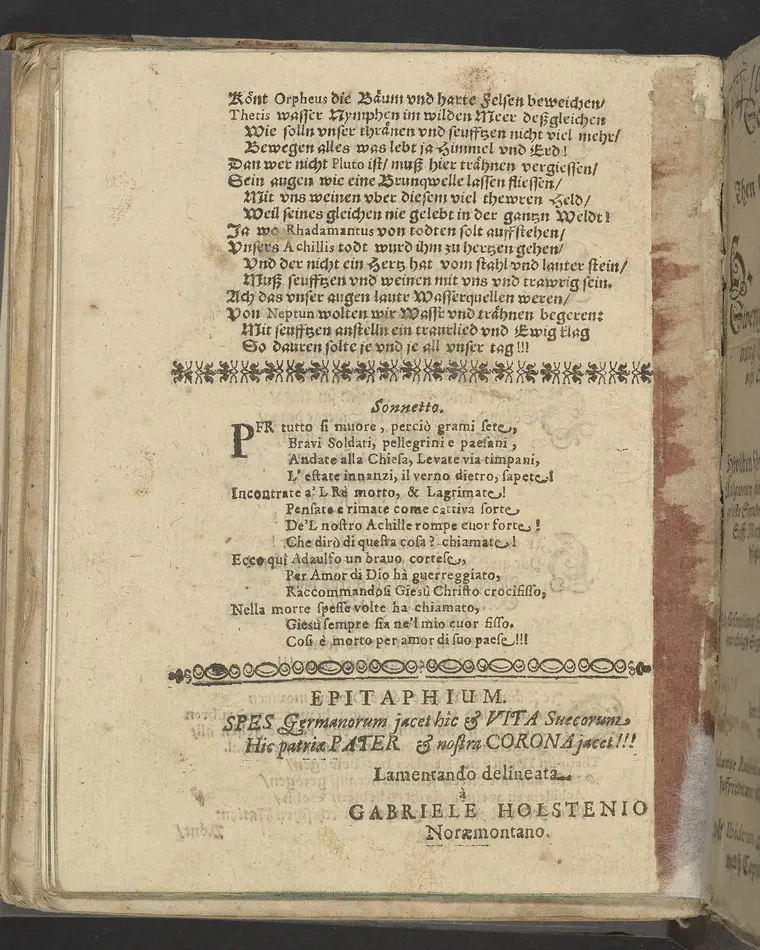 Könt Orpheus die Bäum vnd harte Felsen beweichen/
Thetis wasser Nymphen im wilden Meer deßgleichen
Wie solln vnser thränen vnd seufftzen nicht viel mehr/
Bewegen alles was lebt ja Himmel vnd Erd!
Dan wer nicht Pluto ist/ muß hier trähnen vergiessen/
Sein augen wie eine Brunqwelle lassen fliessen/
Mit vns weinen vber diesem viel thewren Held/
Weil seines gleichen nie gelebt in der gantzn Weldt!
Ja wo Rhadamantus von todten solt aufstehen/
Vnsers Achillis todt wurd ihm zu hertzen gehen/
Vnd der nicht ein Hertz hat vom stahl vnd lauter stein/
Muß seufftzen vnd weinen mit vns vnd trawrig sein.
Ach das vnser augen lautr Wasserquellen weren/
Von Neptun wolten wir Wassr vnd trähnen begeren:
Mit seufftzen anstelln ein traurlied vnd Ewig klag
So dauren solte je vnd je all vnser tag!!!
Sonnetto.
PER tutto si muore, perciò grami sete,
Bravi Soldati, pellegrini e paesani,
Andate alla Chiesa, Levate via timpani,
L'estate innanzi, il verno dietro, sapete!
Incontrate a'L Rè morto, & Lagrimate!
Pensate e rimate come cattiva sorte
De'L nostro Achille rompe cuor forte!
Che dirò di questa cosa? chiamate!
Ecco qui Adaulfo un brauo cortese,
Per Amor di Dio hà guerreggiato,
Raccommandosi Giesù Christo crocifisso,
Nella morte spesse volte ha chiamato,
Giesù sempre sia ne'l mio cuor fisso.
Cosi è morto per amor di suo paese!!!
EPITAPHIUM.
SPES Germanorum jacet hic & VITA Suecorum
Hic patriæ PATER & nostra CORONA jacet!!!
Lamentando delineata
à
GABRIELE HOLSTENIO
Noræmontano.